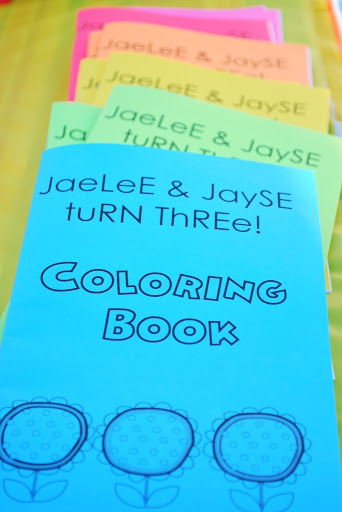 JaeLeE & JaySE
JaeLeE & JaySE
JaeLeE & JaySE
tuRN ThREe!
JaeLeE & JaySE
tuRN ThREe!
COLORING
BOOK